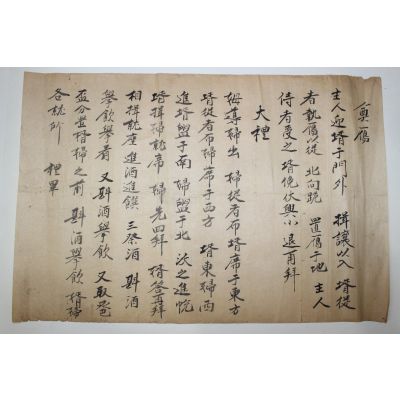 奠鴈
主人迎壻于門外 揖讓以入 壻從
者執鴈從 北向跪 置鴈于地 主人
侍者受之 壻俛伏興小退再拜
大禮
姆導婦出 婦從者布壻席于東方
壻從者布婦席于西方 壻東婦西
進壻盥于南 婦盥于北 沃之進帨
壻揖婦就席 婦先四拜 壻答再拜
相揖就座 進酒進饌 三祭酒 斟酒
擧飮擧肴 又斟酒擧飮 又取巹
盃分置壻婦之前 斟酒擧飮 壻婦
各就所 禮畢